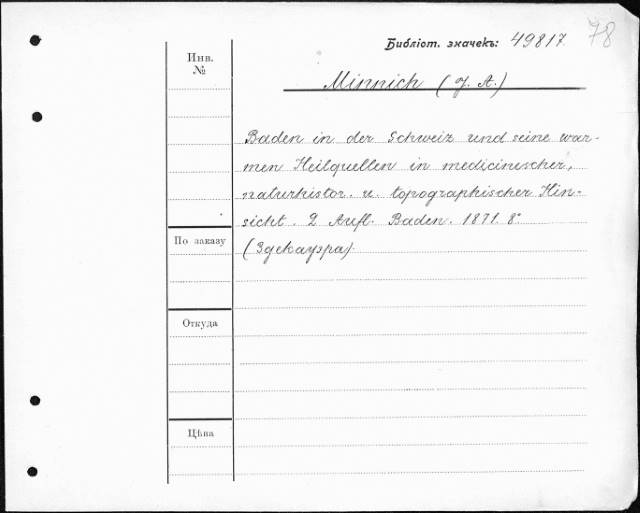 Библіот. значекъ: 49817. 78
Инв.
№
Minnich (J. A.)
Baden in der Schweiz und seine war-
men Heilquellen in medicinischer,
naturhistor. u. topographischer Hin-
sicht. 2 Aufl. Baden. 1871. 8°
(Здекауэра).
По заказу
Откуда
Цѣна